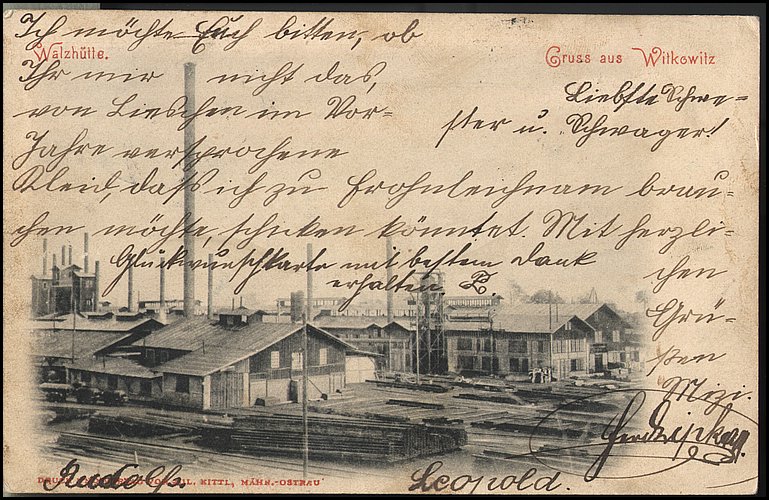 Walzhütte.
Gruss aus Witkowitz
Liebste Schwe-
ster u. Schwager!
Ich möchte Euch bitten, ob
Ihr mir nicht das,
von Lieschen im Vor-
Jahre versprochene
Kleid, daß ich zu Frohnleichnam brau-
chen möchte, schicken könntet. Mit herzli-
chen
Grü-
ßen
Mizi.
Glückwunschkarte mit bestem Dank
erhalten
Rudolf.
Leopold.
KITTL, MÄHR.-OSTRAU